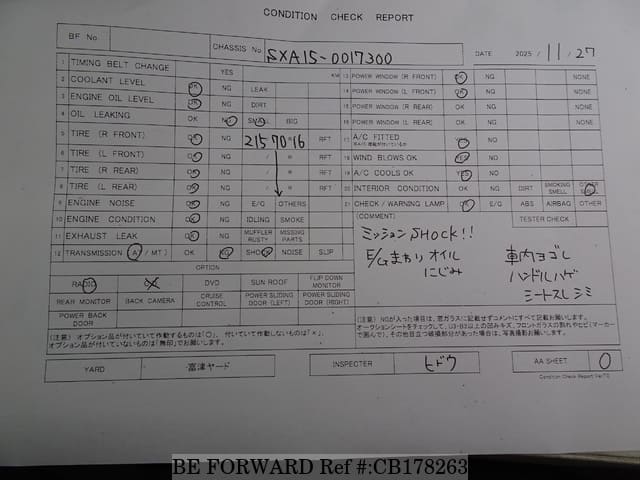 CONDITION CHECK REPORT
BF No. CHASSIS No. SXA15-0017300 DATE 2025 / 11 / 27
YES KM
1 TIMING BELT CHANGE
2 COOLANT LEVEL OK NG LEAK
3 ENGINE OIL LEVEL OK NG DIRT
4 OIL LEAKING OK NG SMALL BIG
5 TIRE (R FRONT) OK NG 215 70 16 RFT
6 TIRE (L FRONT) OK NG / R RFT
7 TIRE (R REAR) OK NG / R RFT
8 TIRE (L REAR) OK NG / R RFT
9 ENGINE NOISE OK NG E/G OTHERS
10 ENGINE CONDITION OK NG IDLING SMOKE
11 EXHAUST LEAK OK NG MUFFLER RUSTY MISSING PARTS
12 TRANSMISSION (A / MT) OK NG SHOCK NOISE SLIP
13 POWER WINDOW (R FRONT) OK NG NONE
14 POWER WINDOW (L FRONT) OK NG NONE
15 POWER WINDOW (R REAR) OK NG NONE
16 POWER WINDOW (L REAR) OK NG NONE
17 A/C FITTED YES NO
18 WIND BLOWS OK YES NO
19 A/C COOLS OK YES NO
20 INTERIOR CONDITION OK NG DIRT SMOKING SMELL OTHER SMELL
21 CHECK / WARNING LAMP OK E/G ABS AIRBAG OTHER
(COMMENT) TESTER CHECK
ミッションSHOCK!!
E/Gまわりオイル
にじみ
車内ヨゴレ
ハンドルハゲ
シートスレシミ
OPTION
RADIO DVD SUN ROOF FLIP DOWN MONITOR
REAR MONITOR BACK CAMERA CRUISE CONTROL POWER SLIDING DOOR (LEFT) POWER SLIDING DOOR (RIGHT)
POWER BACK DOOR
(注意) オプション品が付いていて作動するものは「○」、付いていて作動しないものは「×」、
オプション品が付いていないものは「無印」でお願いします。
(注意) NGが入った場合は、窓ガラスに記載せずコメントにすべて記載お願いします。
オークションシートをチェックして、U3・B3以上の凹みキズ、フロントガラスの割れやヒビ(マーカー
で囲んで)、その他目立つ破損部分があった場合は、写真撮影お願いします。
YARD 富津ヤード INSPECTER ヒドウ AA SHEET 0
Condition Check Report Ver7.0
BE FORWARD Ref #:CB178263